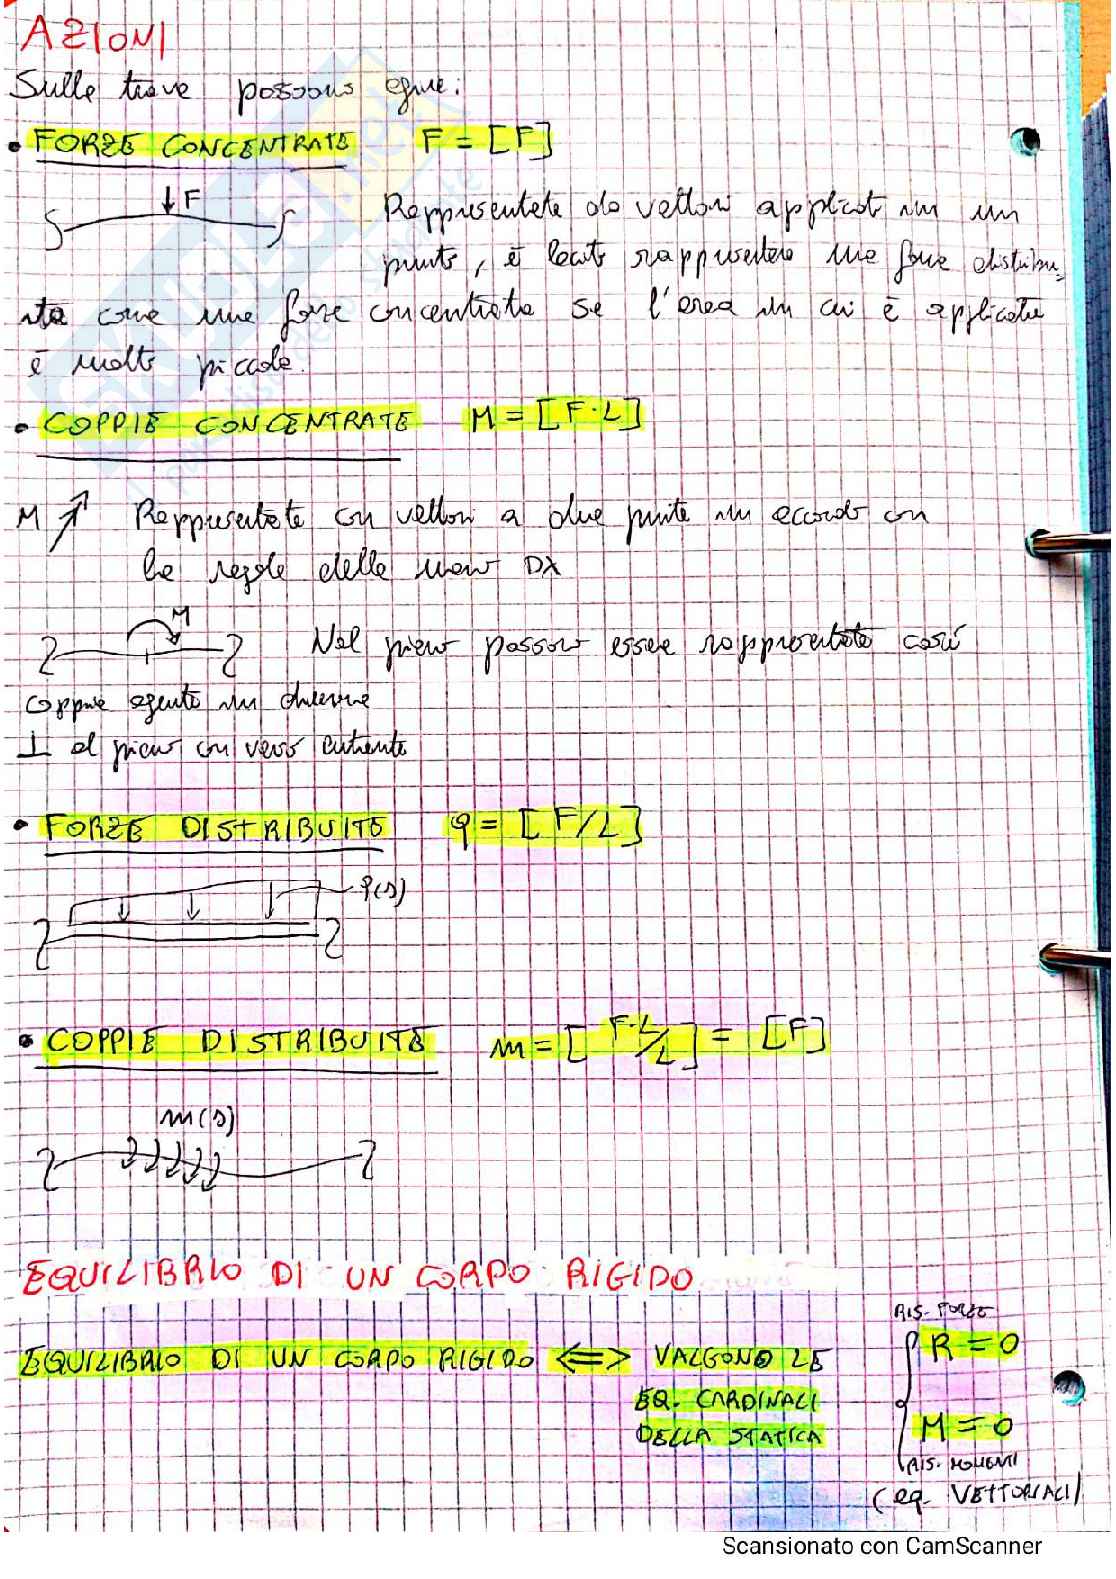 AZIONI
Sulle trave possono agire:
• FORZE CONCENTRATE F = [F]
F
Rappresentate da vettori applicati in un
punto, è lecito rappresentare una forza distribu-
ita come una forza concentrata se l'area in cui è applicata
è molto piccola.
• COPPIE CONCENTRATE M = [F·L]
M Rappresentate con vettori a due punte in accordo con
la regola della mano DX
M
Nel piano possono essere rappresentate così
oppure agente in
⊥ al piano con verso entrante
• FORZE DISTRIBUITE q = [F/L]
q(s)
• COPPIE DISTRIBUITE m = [F·L/L] = [F]
m(s)
EQUILIBRIO DI UN CORPO RIGIDO
RIS. FORZE
EQUILIBRIO DI UN CORPO RIGIDO <=> VALGONO LE { R = 0
EQ. CARDINALI
DELLA STATICA M = 0
RIS. MOMENTI
(eq. VETTORIALI)
Scansionato con CamScanner